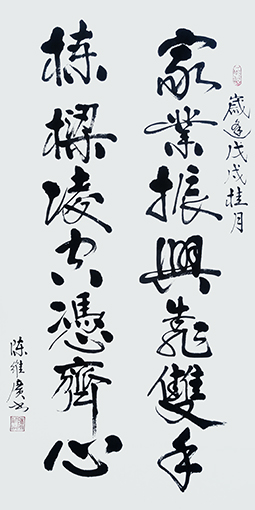 歲逢戊戌桂月
家業振興靠雙手
棟樑凌空憑齊心
陳維廣書